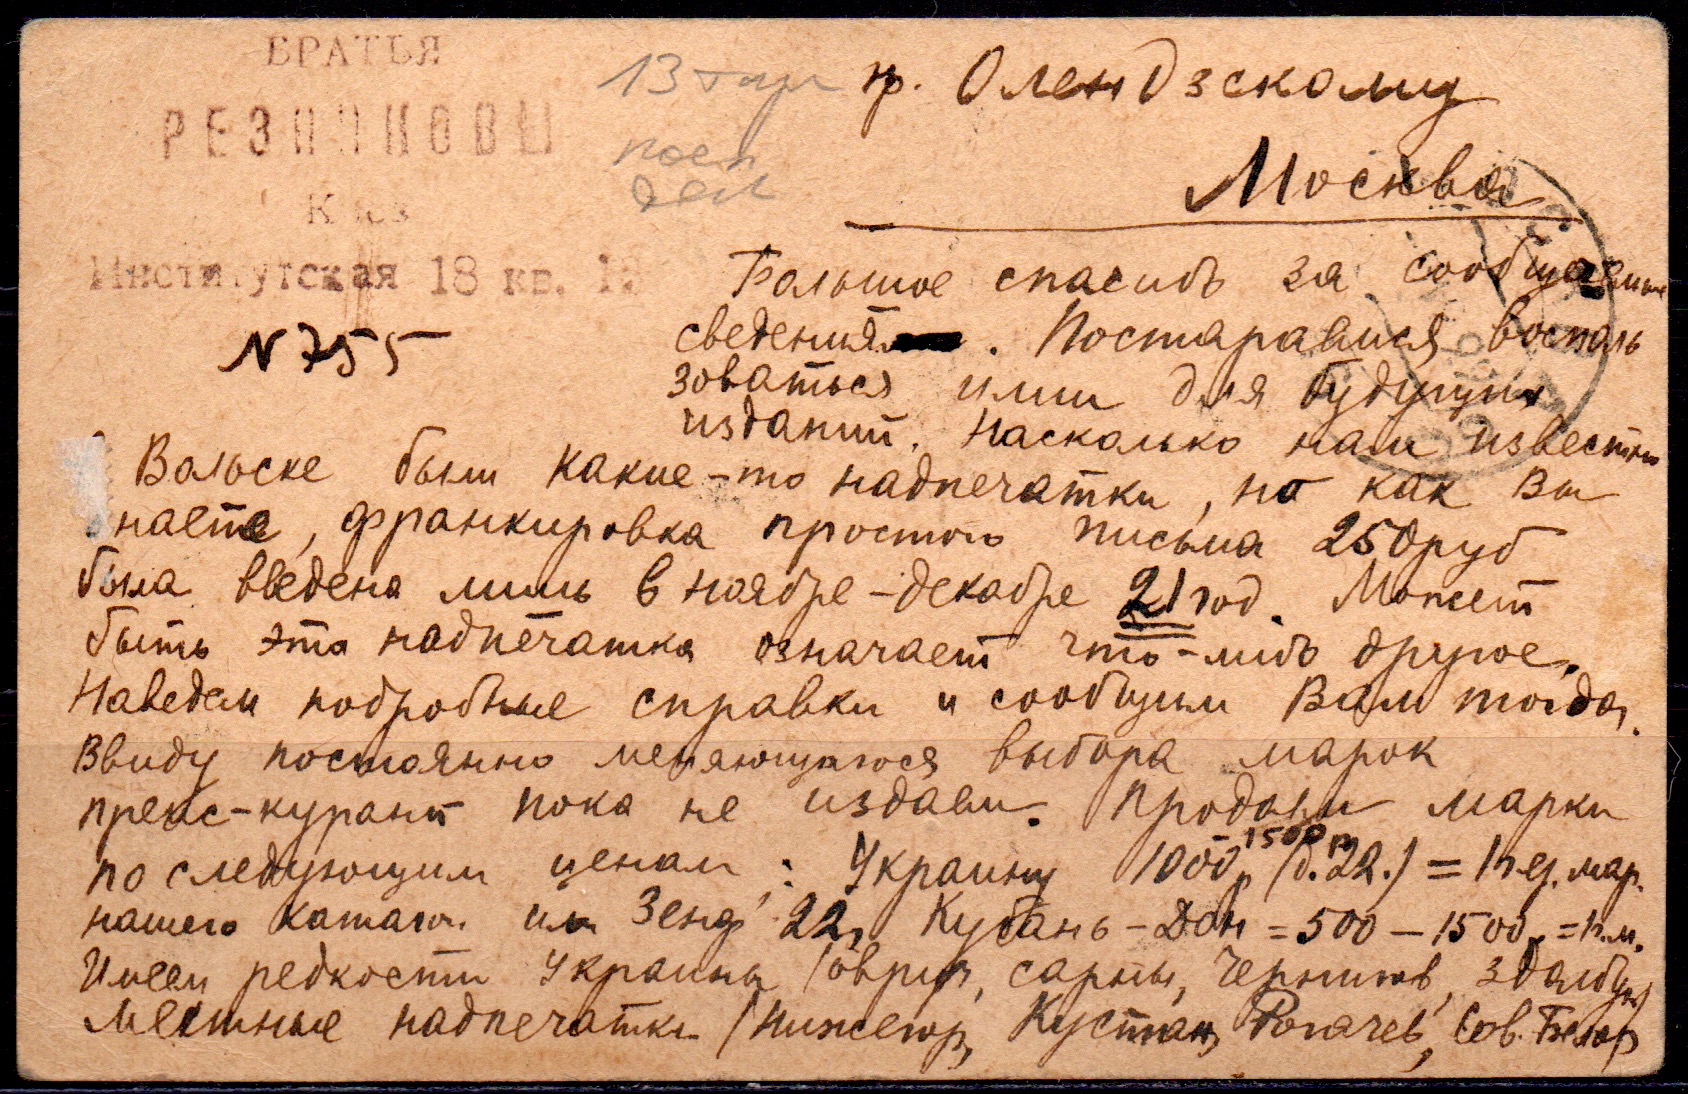 БРАТЬЯ
РЕЗНИКОВЫ
Киев
Институтская 18 кв.
N 755
13
гр. Олендзскому
Москва
Большое спасибо за сообщаемые
сведения. Постараемся восполь
зоваться ими для будущих
изданий. Насколько нам известно
в Вольске были какие-то надпечатки, но как Вы
знаете, франкировка простого письма 250 руб
была введена лишь в ноябре-декабре 21 год. Может
быть эта надпечатка означает что-либо другое.
Наведем подробные справки и сообщим Вам тогда.
Ввиду постоянно меняющегося выбора марок
прейс-курант пока не издаем. Продаем марки
по следующим ценам: Украину 1000 - 1500 р (д. 22.) = 1 п. мар.
нашего катал. или Зенф 22, Кубань - Дон = 500 - 1500 р = 1 п.м.
Имеем редкости Украины (Овруч, Сарны, Чернигов, Здолбун)
Местные надпечатки (Нижегор, Кустан, Рогачев, Сов. Белор